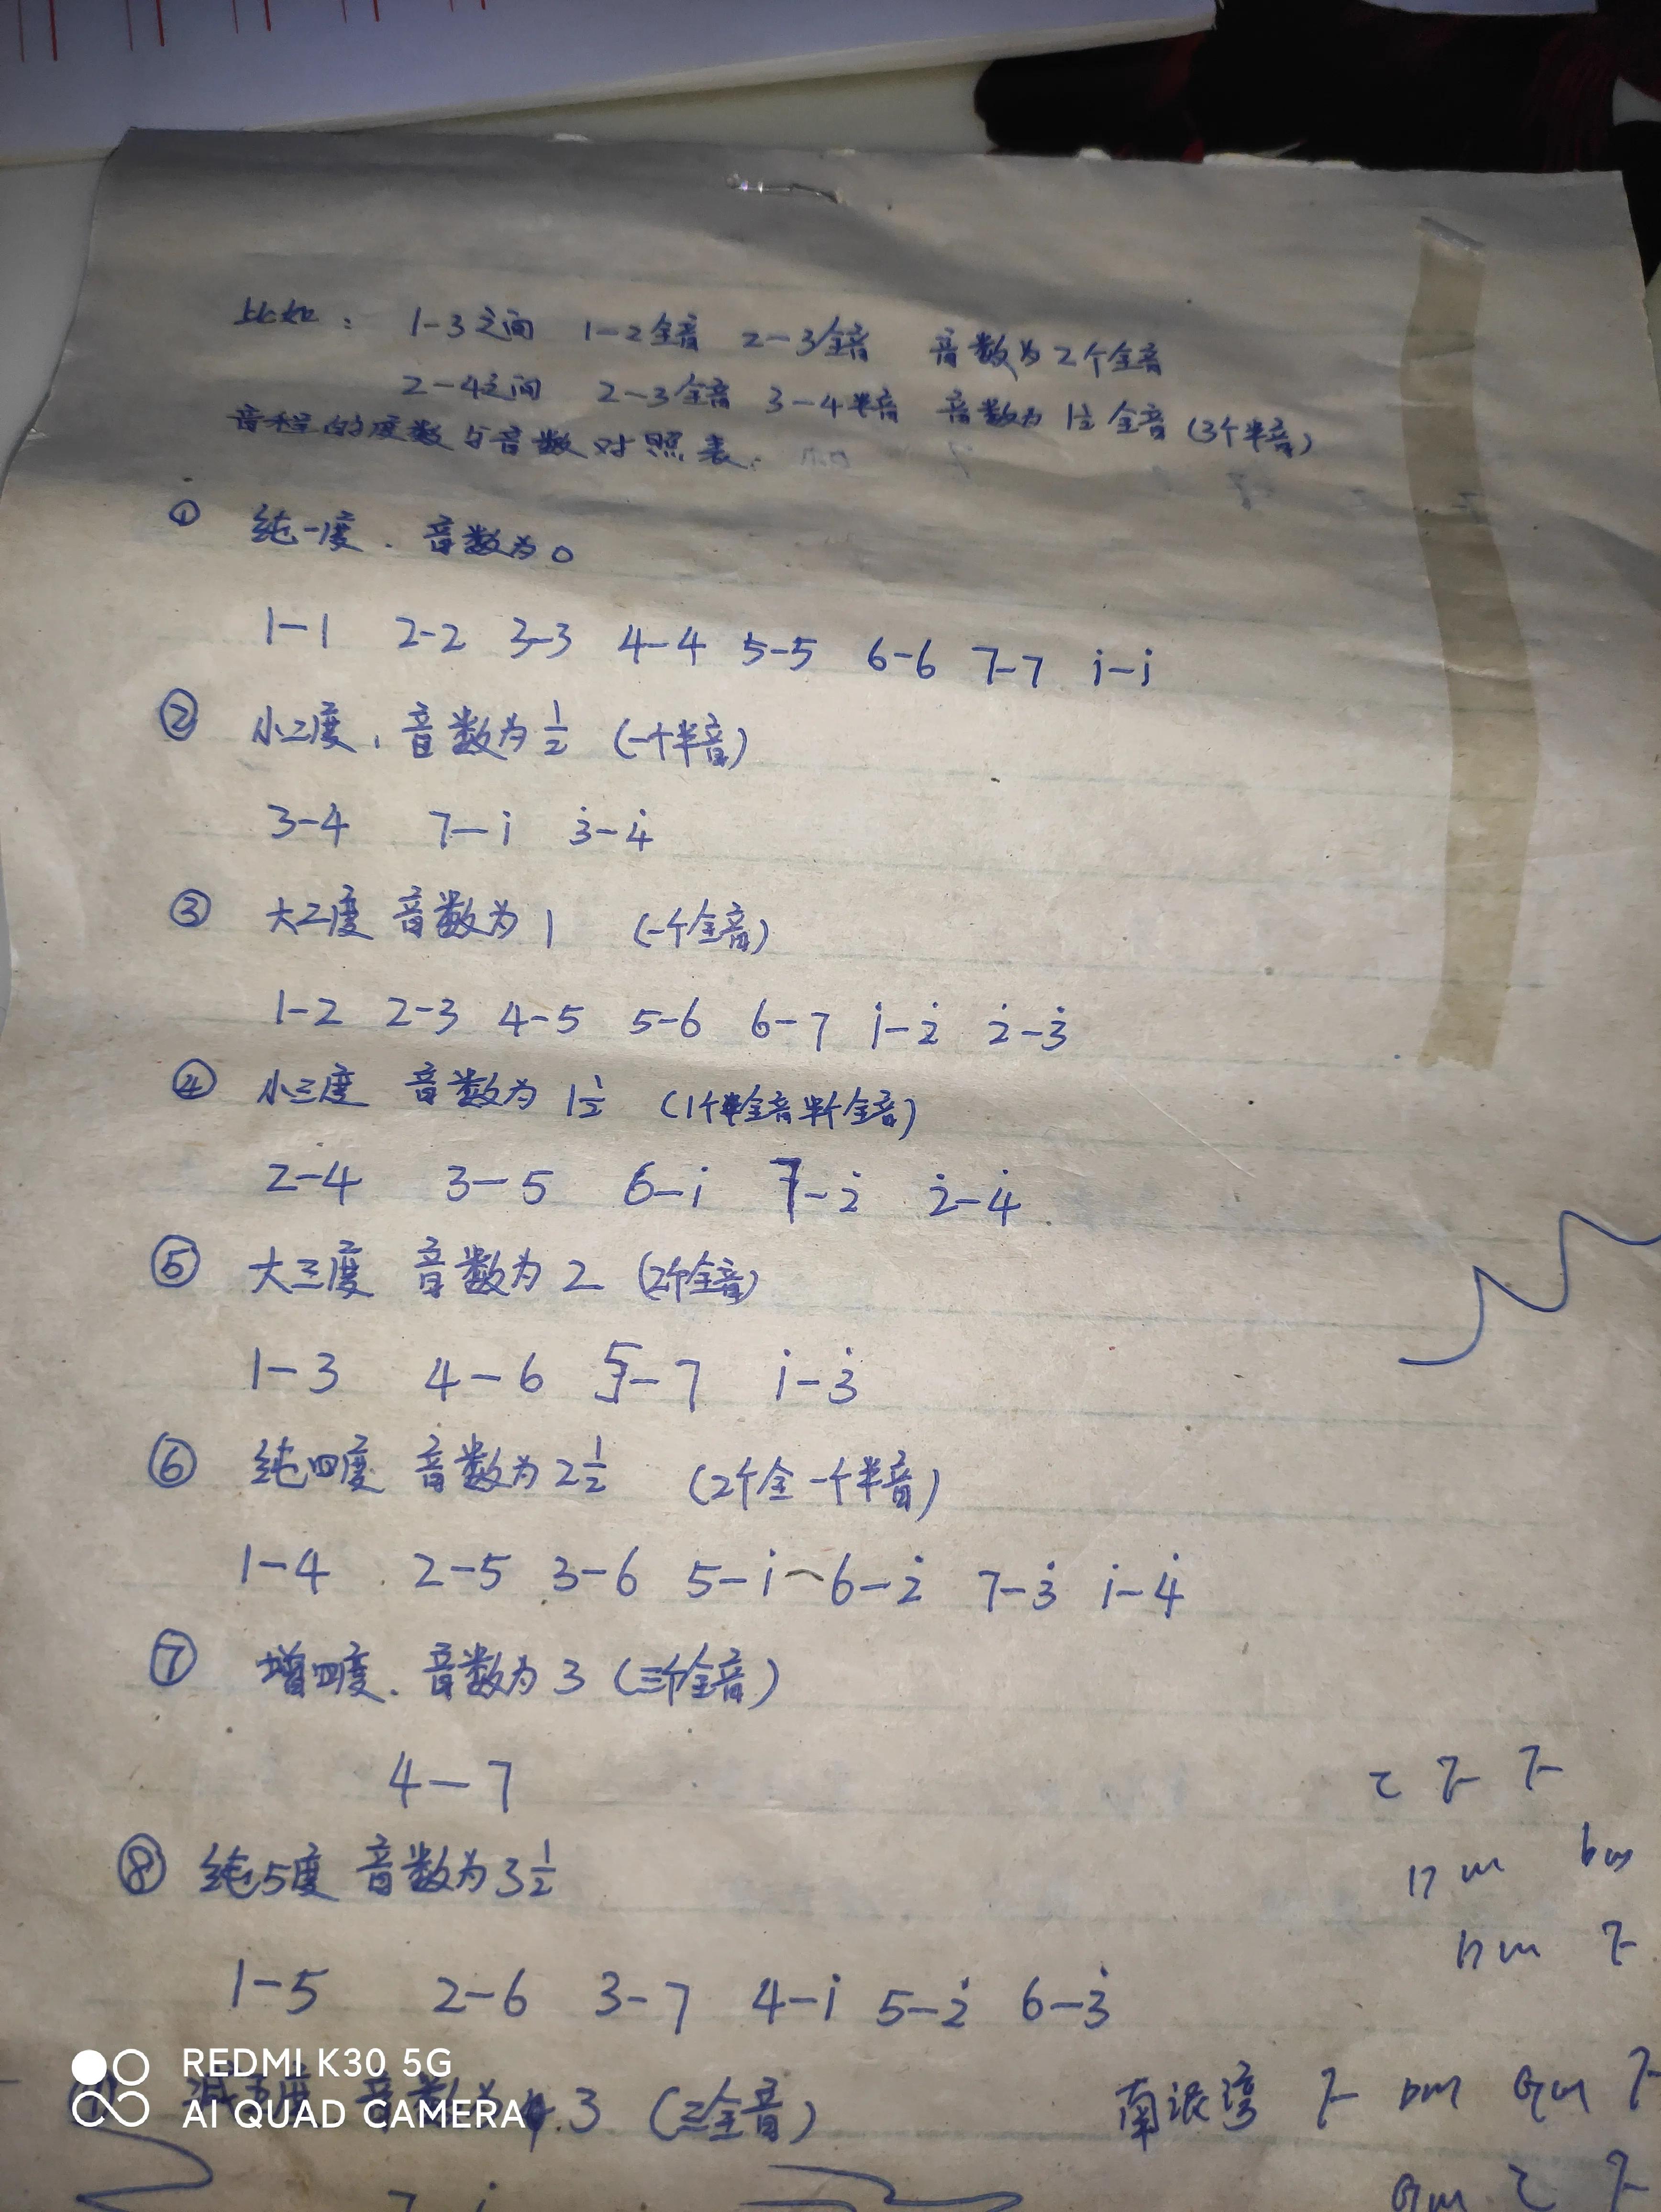 比如： 1-3之间 1-2全音 2-3全音 音数为2个全音
2-4之间 2-3全音 3-4半音 音数为1½全音（3个半音）
音程的度数与音数对照表.
① 纯一度、音数为0
1-1 2-2 3-3 4-4 5-5 6-6 7-7 i-i
② 小二度, 音数为½ (一个半音)
3-4 7-i 3̇-4̇
③ 大二度 音数为1 (一个全音)
1-2 2-3 4-5 5-6 6-7 i-2̇ 2̇-3̇
④ 小三度 音数为1½ (1个全音半个全音)
2-4 3-5 6-i 7-2̇ 2̇-4̇
⑤ 大三度 音数为2 (2个全音)
1-3 4-6 5-7 i-3̇
⑥ 纯四度 音数为2½ (2个全一个半音)
1-4 2-5 3-6 5-i 6-2̇ 7-3̇ i-4̇
⑦ 增四度、音数为3 (三个全音)
4-7
⑧ 纯5度 音数为3½
1-5 2-6 3-7 4-i 5-2̇ 6-3̇
减五度 音数为3 (三全音)
南泥湾
REDMI K30 5G
AI QUAD CAMERA